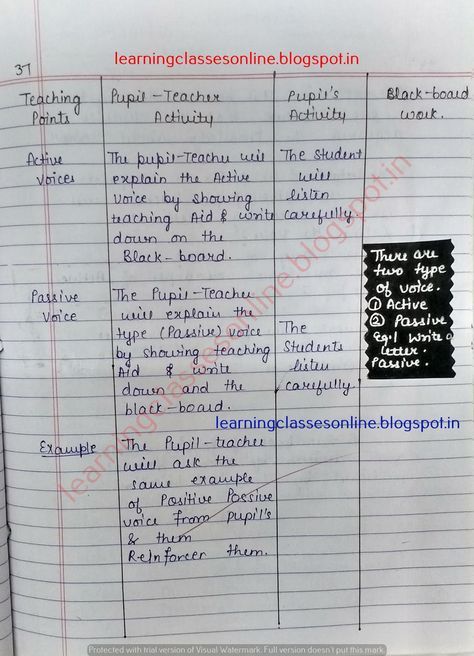 learningclassesonline.blogspot.in
37
Teaching
Points
Pupil-Teacher
Activity
Pupil's
Activity
Black-board
work.
Active
Voices
The pupil-Teacher will
explain the Active
voice by showing
teaching Aid & write
down on the
Black-board.
The Student
will
listen
carefully
There are
two type
of voice.
① Active
② Passive
Eg:1 Write a
letter.
Passive.
Passive
Voice
The Pupil-Teacher
will explain the
type (Passive) voice
by showing teaching
Aid & write
down and the
black-board.
The
Students
listen
carefully
learningclassesonline.blogspot.in
Example
The Pupil-teacher
will ask the
same example
of Positive Possive
voice from pupil's
& them
Reinforcer them.
learningclassesonline.blogspot.in
Protected with trial version of Visual Watermark. Full version doesn't put this mark.